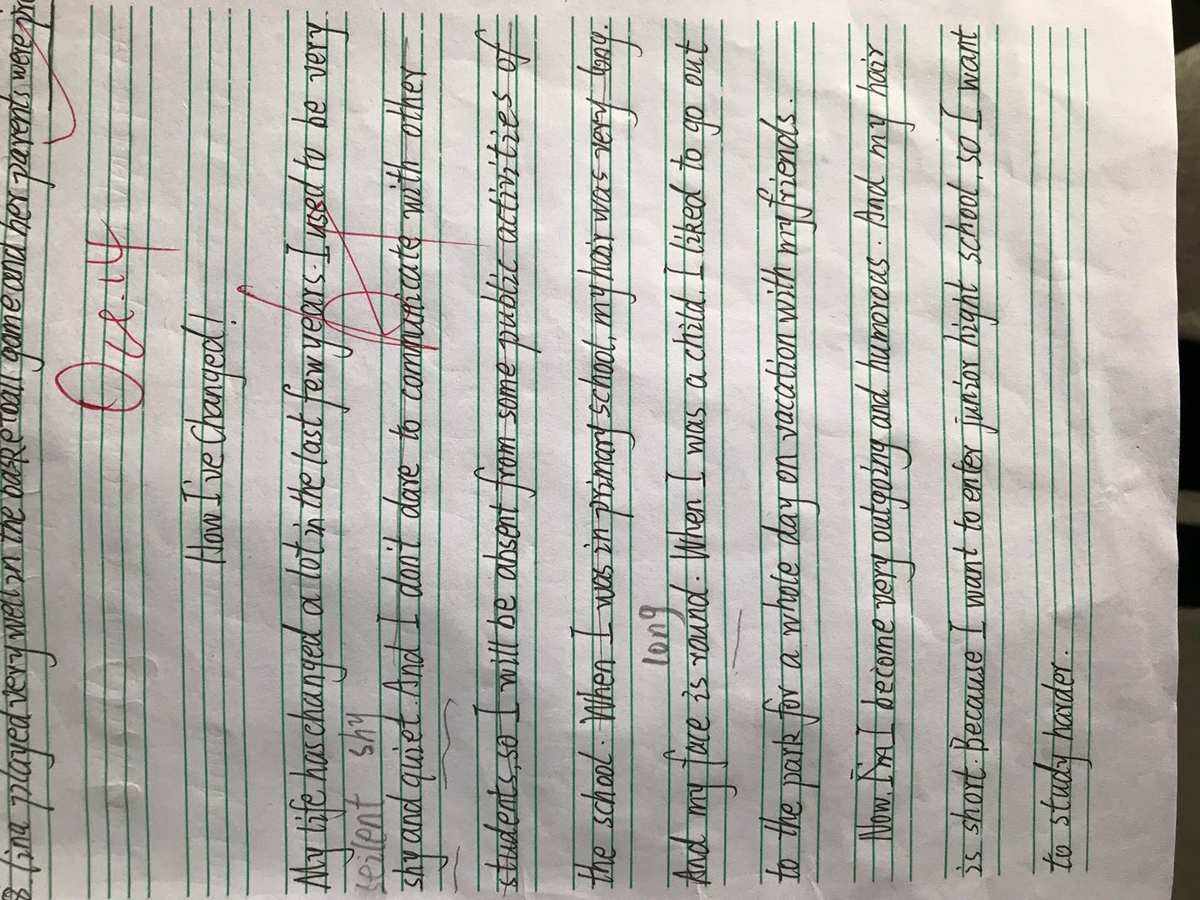 8. Tina played very well in the basketball game and her parents were
Oct. 14
How I've Changed!
My life has changed a lot in the last few years. I used to be very
seilent shy
shy and quiet. And I don't dare to communicate with other
students, so I will be absent from some public activities of
the school. When I was in primary school, my hair was very long.
long
And my face is round. When I was a child. I liked to go out
to the park for a whole day on vacation with my friends.
Now. I'm I become very outgoing and humorous. And my hair
is short. Because I want to enter junior hight school, so I want
to study harder.